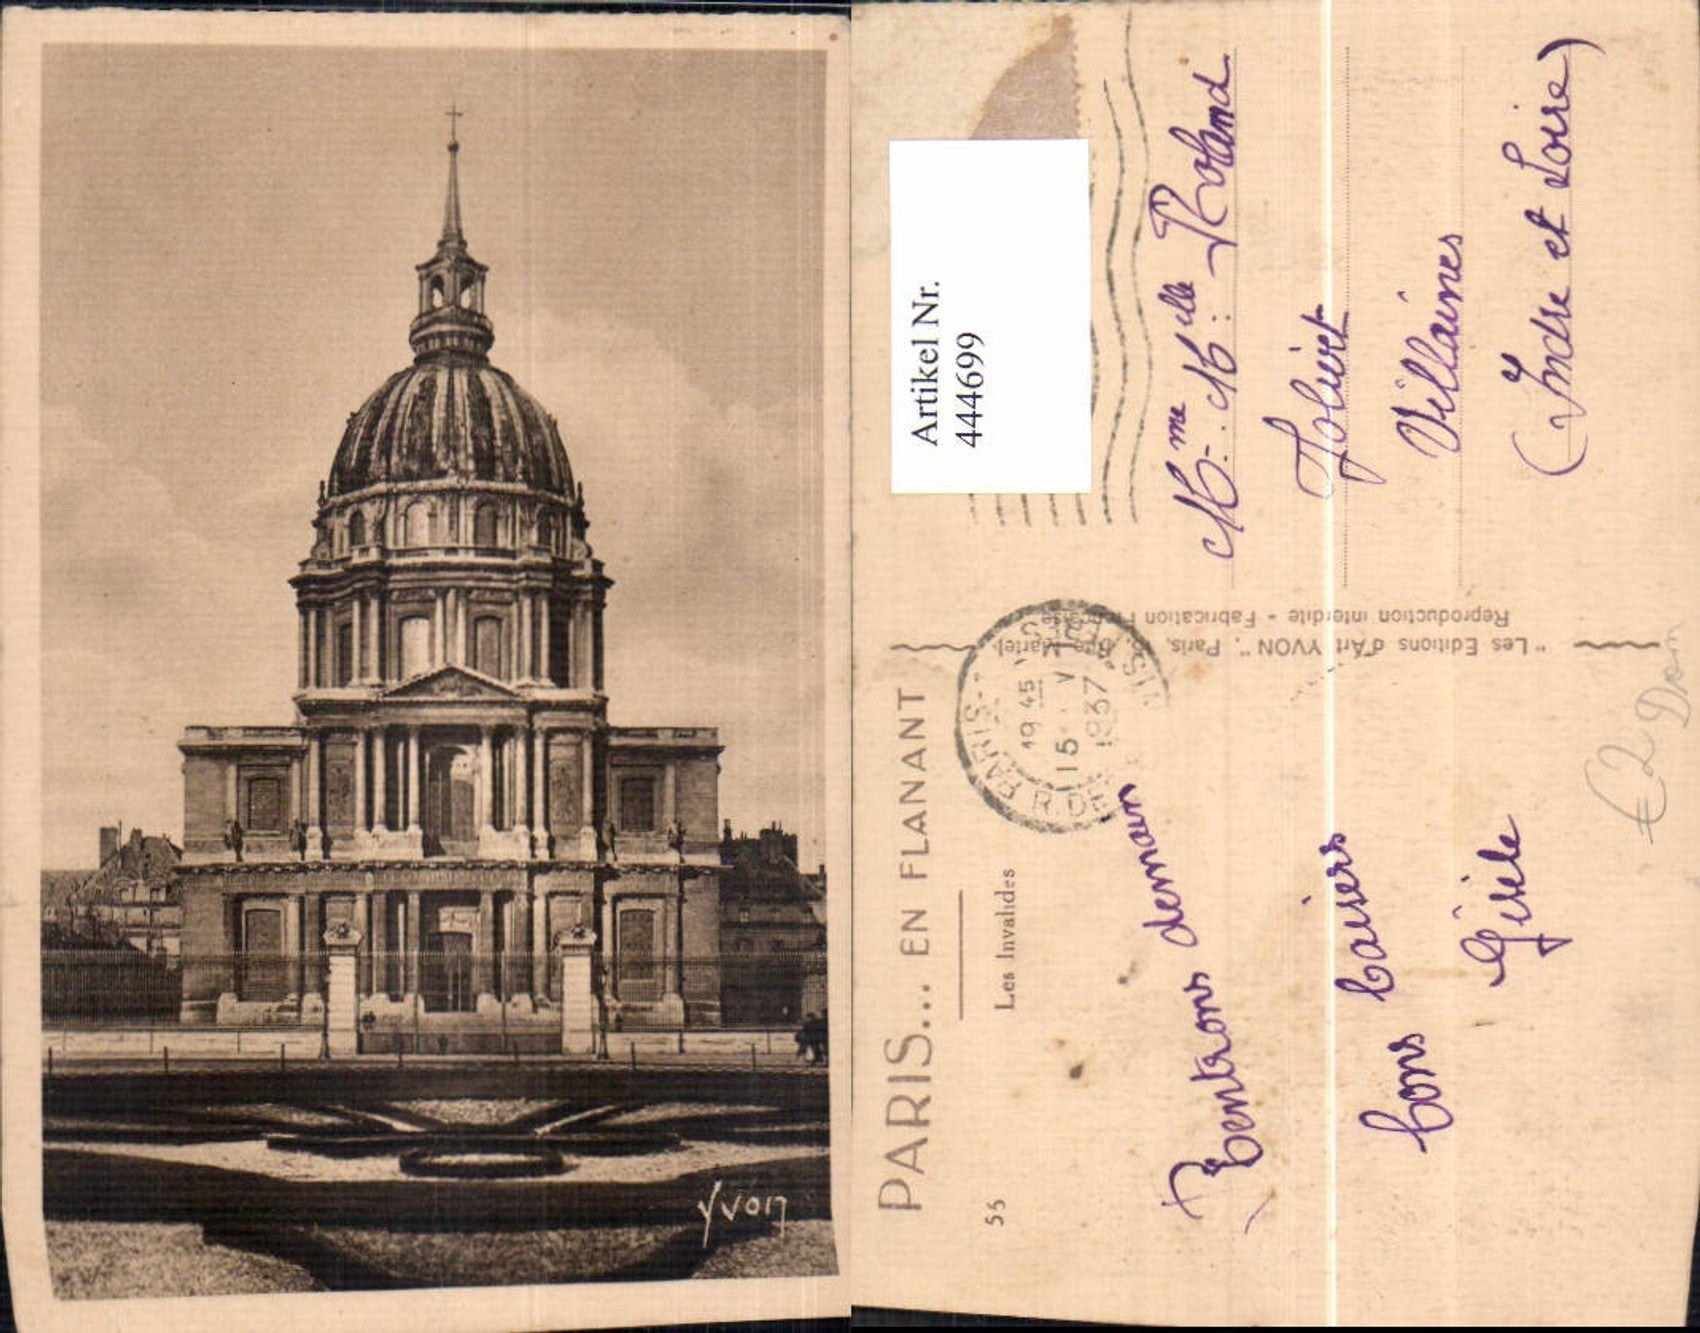 Yvon
PARIS... EN FLANANT
55 Les Invalides
Rentrons demain
bons baisers
Gisèle
"Les Editions d'Art YVON", Paris,
Reproduction interdite - Fabrication
PARIS
19 45
15 V
1937
R. DE
Artikel Nr.
444699
Mme. Melle: Roland
Jolivet
Villaines
(Indre et Loire)
€2 Dan